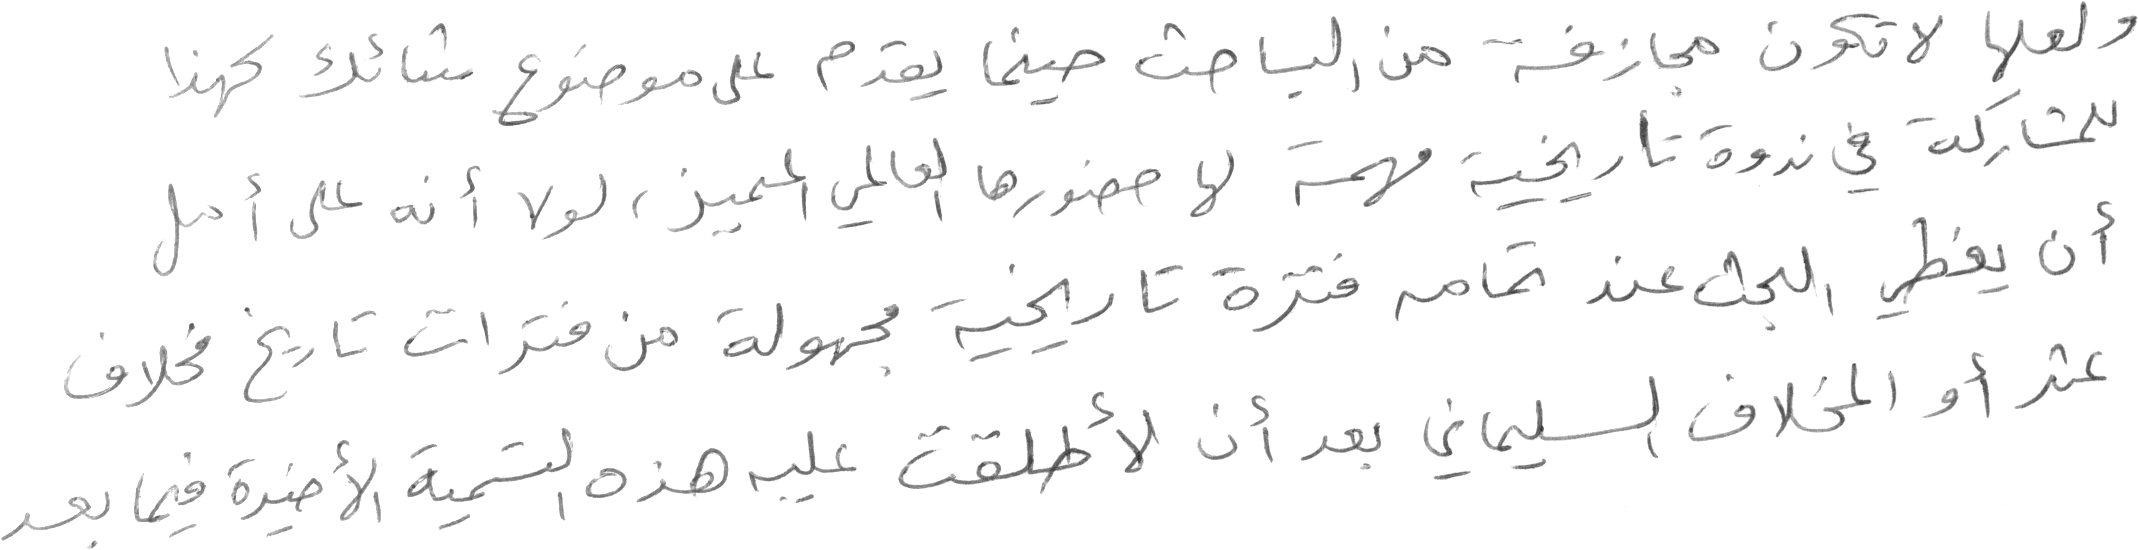 ولعلها لا تكون مجازفة من الباحث حينما يقدم على موضوع شائك كهذا
للمشاركة في ندوة تاريخية مهمة لها حضورها العالمي المميز، لولا أنه على أمل
أن يغطي البحث عند تمامه فترة تاريخية مجهولة من فترات تاريخ مخلاف
عثر أو المخلاف السليماني بعد أن لأطلقت عليه هذه التسمية الأخيرة فيما بعد